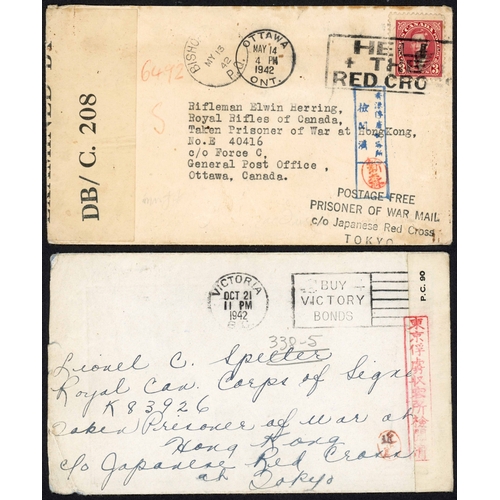 EXAMINED BY
DB/C. 208
BISHO
MY 15
42
P.Q.
OTTAWA
MAY 14
4 PM
1942
ONT.
HE
+ TH
RED CRO
3 3
6492
S
Rifleman Elwin Herring,
Royal Rifles of Canada,
Taken Prisoner of War at HongKong,
No.E 40416
c/o Force C,
General Post Office,
Ottawa, Canada.
檢閲濟
POSTAGE FREE
PRISONER OF WAR MAIL
c/o Japanese Red Cross
TOKYO
VICTORIA
OCT 21
11 PM
1942
B.C.
BUY
VICTORY
BONDS
P.C. 90
330-5
Lionel C. Speller
Royal Can. Corps of Signs
K83926
Taken Prisoner of War at
Hong Kong
c/o Japanese Red Cross
at Tokyo
東京俘虜収容所檢閲濟